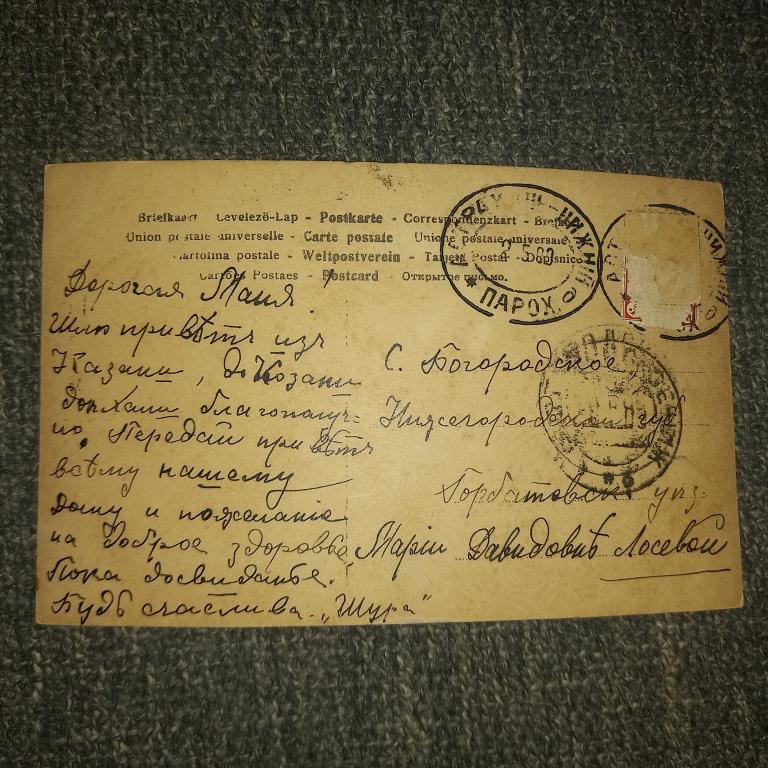 Briefkaart Levelező-Lap - Postkarte - Correspondenzkart -
Union postale universelle - Carte postale - Union postale universale
Cartolina postale - Weltpostverein - Tarjeta Postal - Dopisnice
Cartões Postaes - Postcard - Открытое письмо.
ПАРОХ.
Дорогая Маня
Шлю привѣтъ изъ
Казани, до Козани
доѣхали благополуч=
но. Передай привѣтъ
всѣму нашему
дому и пожеланіе
на доброе здоровье
Пока досвиданье.
Будь счаслива. „Шура"
С. Богородское
Нижегородской губ
Горбатовск уѣз
Маріи Давидовнѣ Лосевой